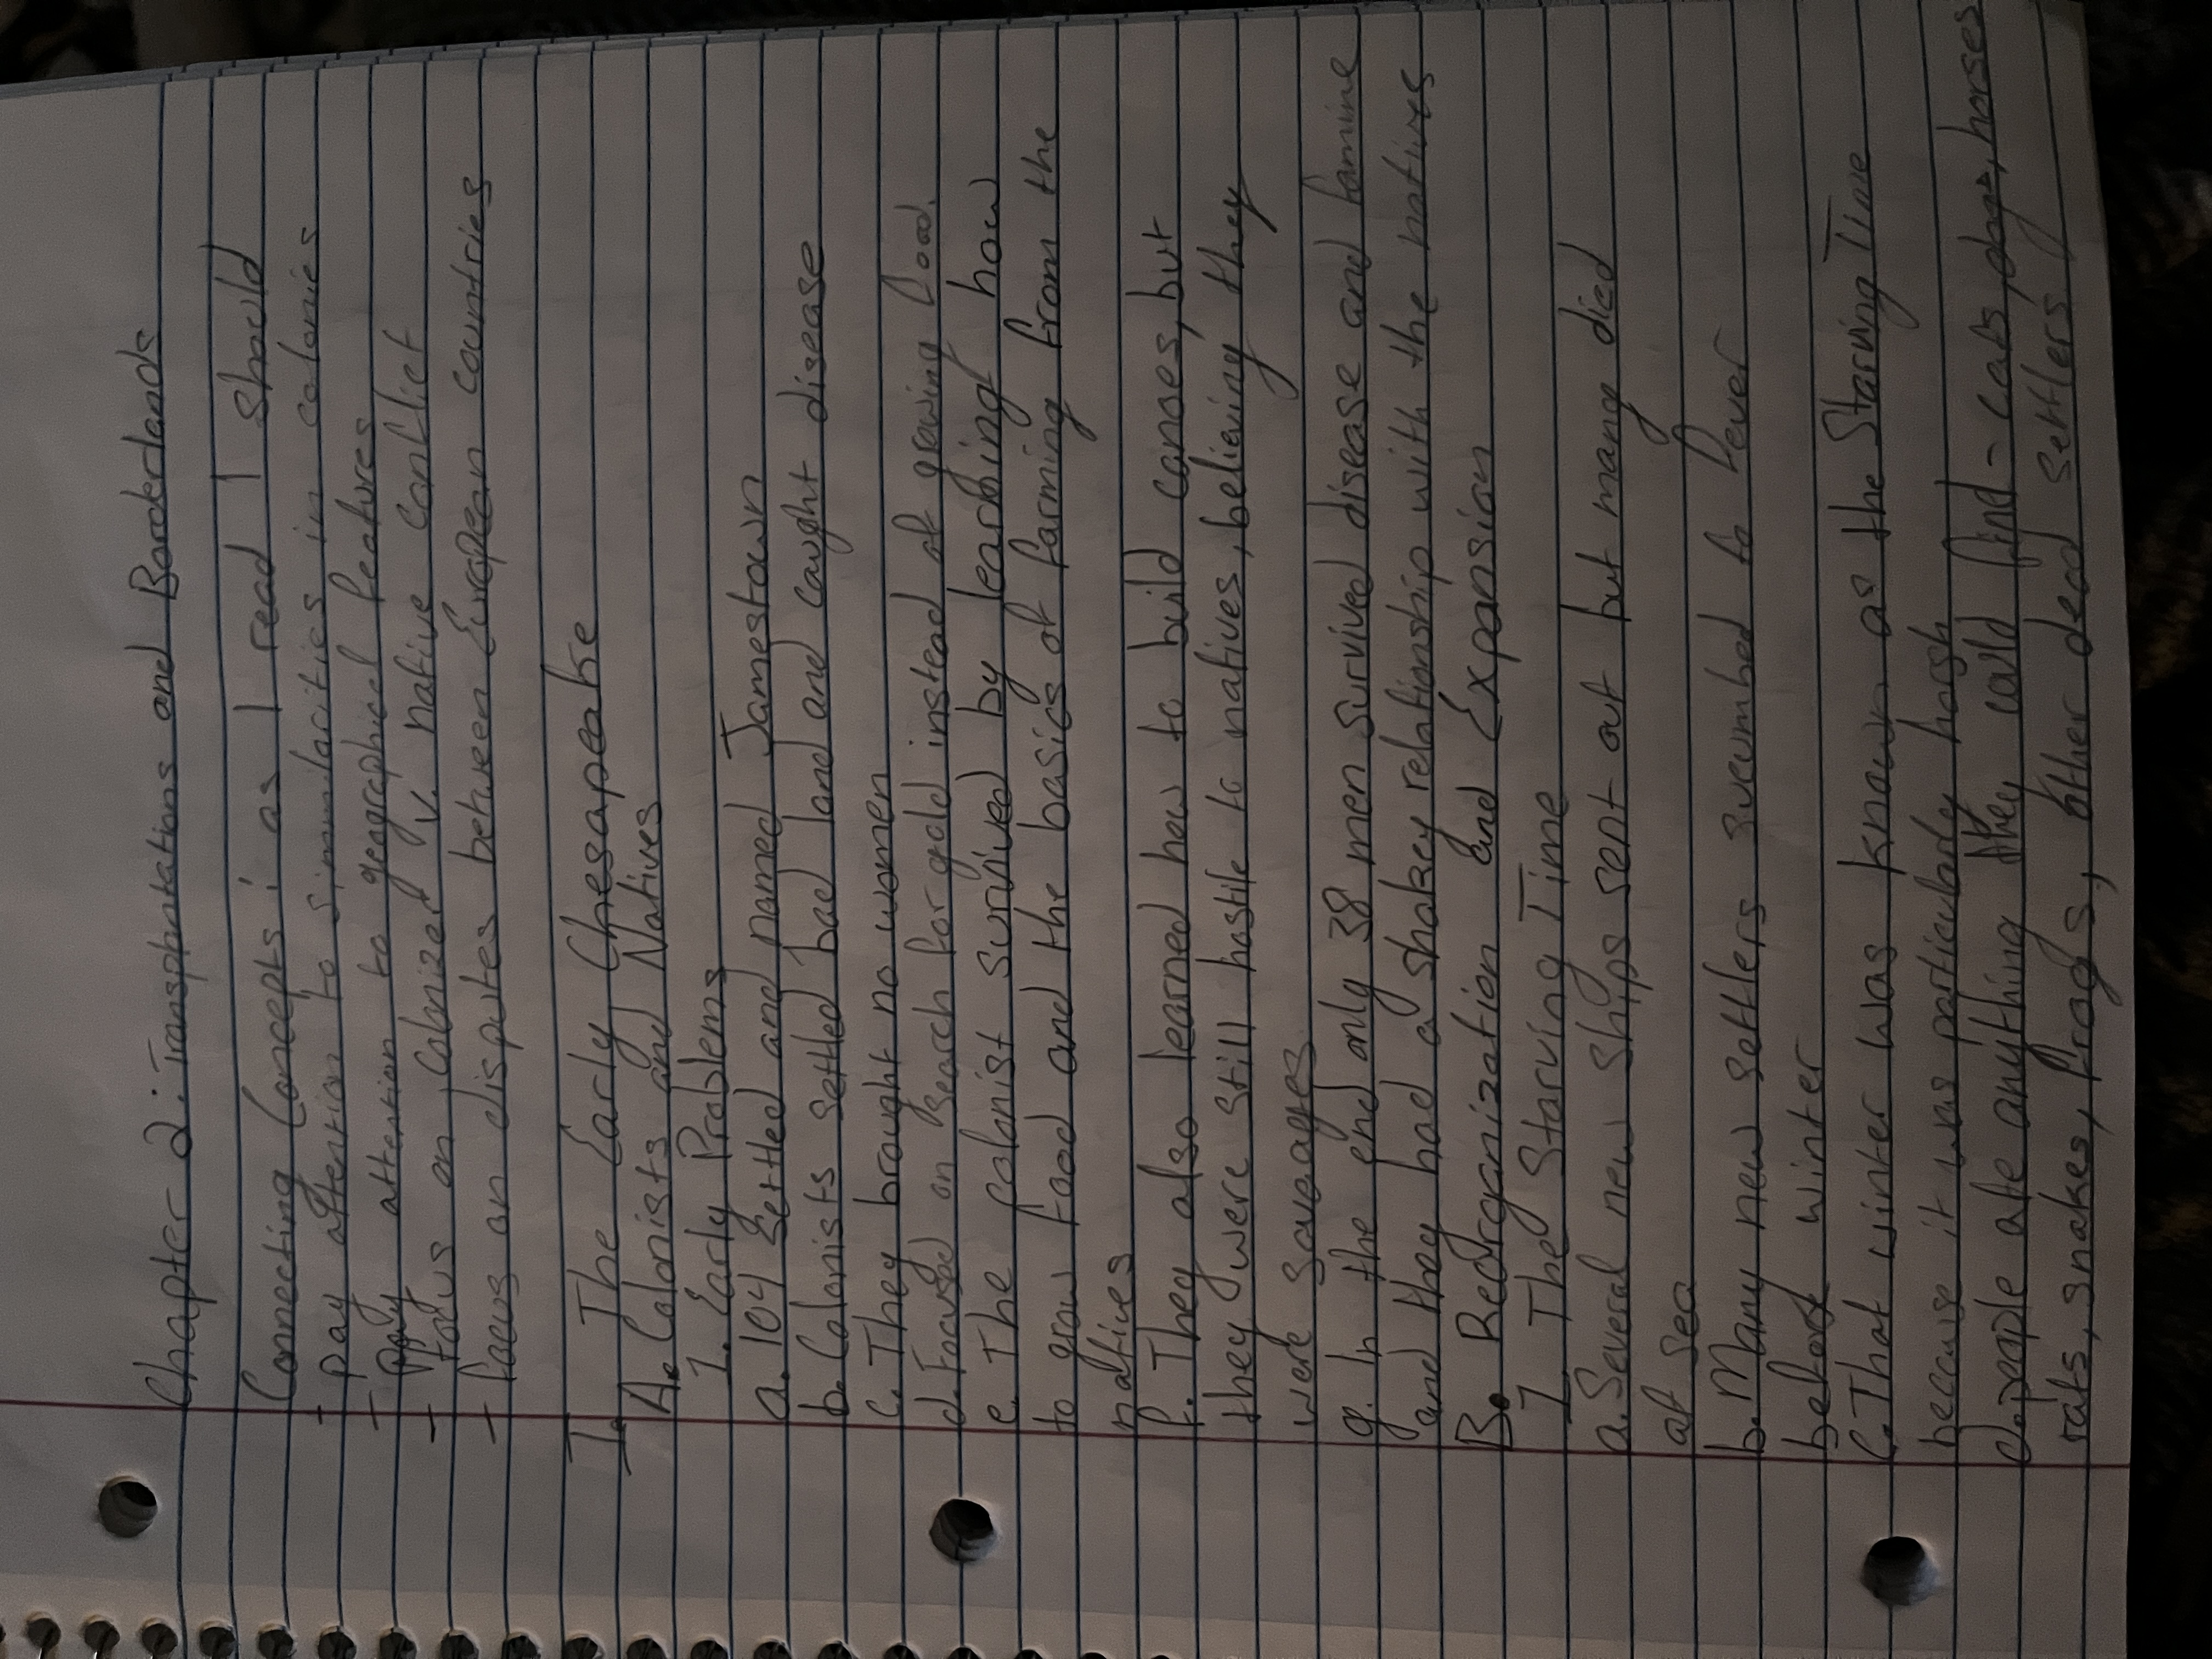 Chapter 2: Transplantations and Borderlands
Connecting Concepts: as I read I should
- pay attention to simmilarities in colonies
- Pay attention to geographical features
- focus on colonizer v. native conflict
- focus on disputes between European countries
I. The Early Chesapeake
A. Colonists and Natives
1. Early Problems
a. 104 settled and named Jamestown
b. Colonists settled bad land and caught disease
c. They brought no women
d. Focused on search for gold instead of growing food.
e. The colonist survived by learning how
to grow food and the basics of farming from the
natives
f. They also learned how to build canoes, but
they were still hostile to natives, believing they
were savages
g. In the end only 38 men survived disease and famine
and they had a shakey relationship with the natives
B. Reorganization and Expansion
1. The Starving Time
a. Several new ships sent out but many died
at sea
b. Many new settlers sucumbed to fever
before winter
C. That winter was known as the Starving Time
because it was particularly harsh
d. people ate anything they could find - cats, dogs, horses
rats, snakes, frogs, other dead settlers